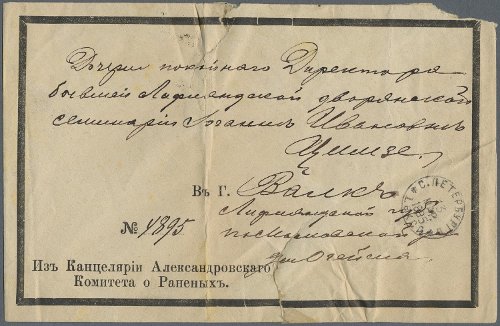 Дочери покойнаго Директора
бывшей Лифляндской дворянской
семинаріи Іоганнѣ Ивановнѣ
Цимзе.
Въ Г. Валкъ
Лифляндской губ.
№ 4895
по Московской
Изъ Канцеляріи Александровскаго
Комитета о Раненыхъ.
С. ПЕТЕРБУРГ